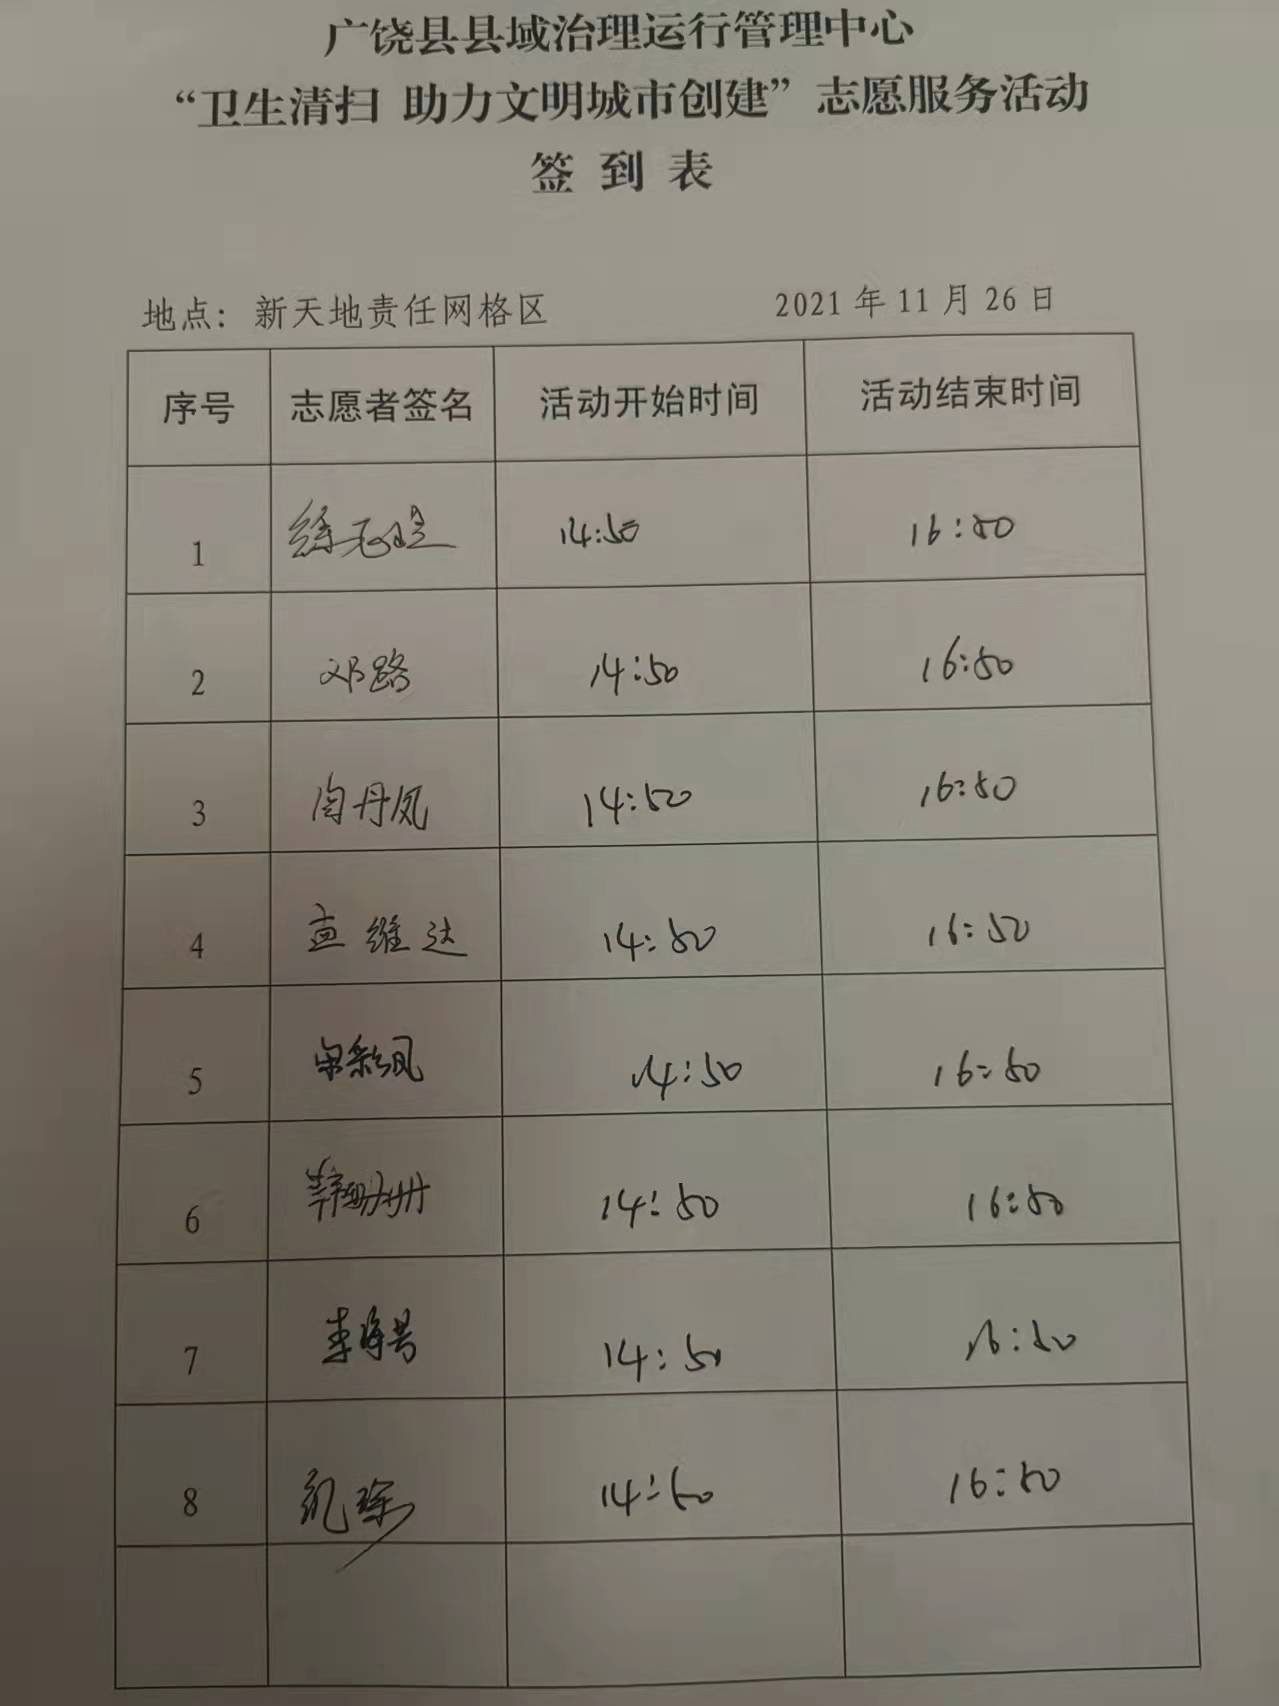 广饶县县域治理运行管理中心
“卫生清扫 助力文明城市创建”志愿服务活动
签 到 表
地点：新天地责任网格区 2021年11月26日
序号 志愿者签名 活动开始时间 活动结束时间
1 14:50 16:50
2 邓路 14:50 16:50
3 丹凤 14:50 16:50
4 维达 14:50 16:50
5 宋彩凤 14:50 16:50
6 14:50 16:50
7 14:50 16:50
8 14:50 16:50